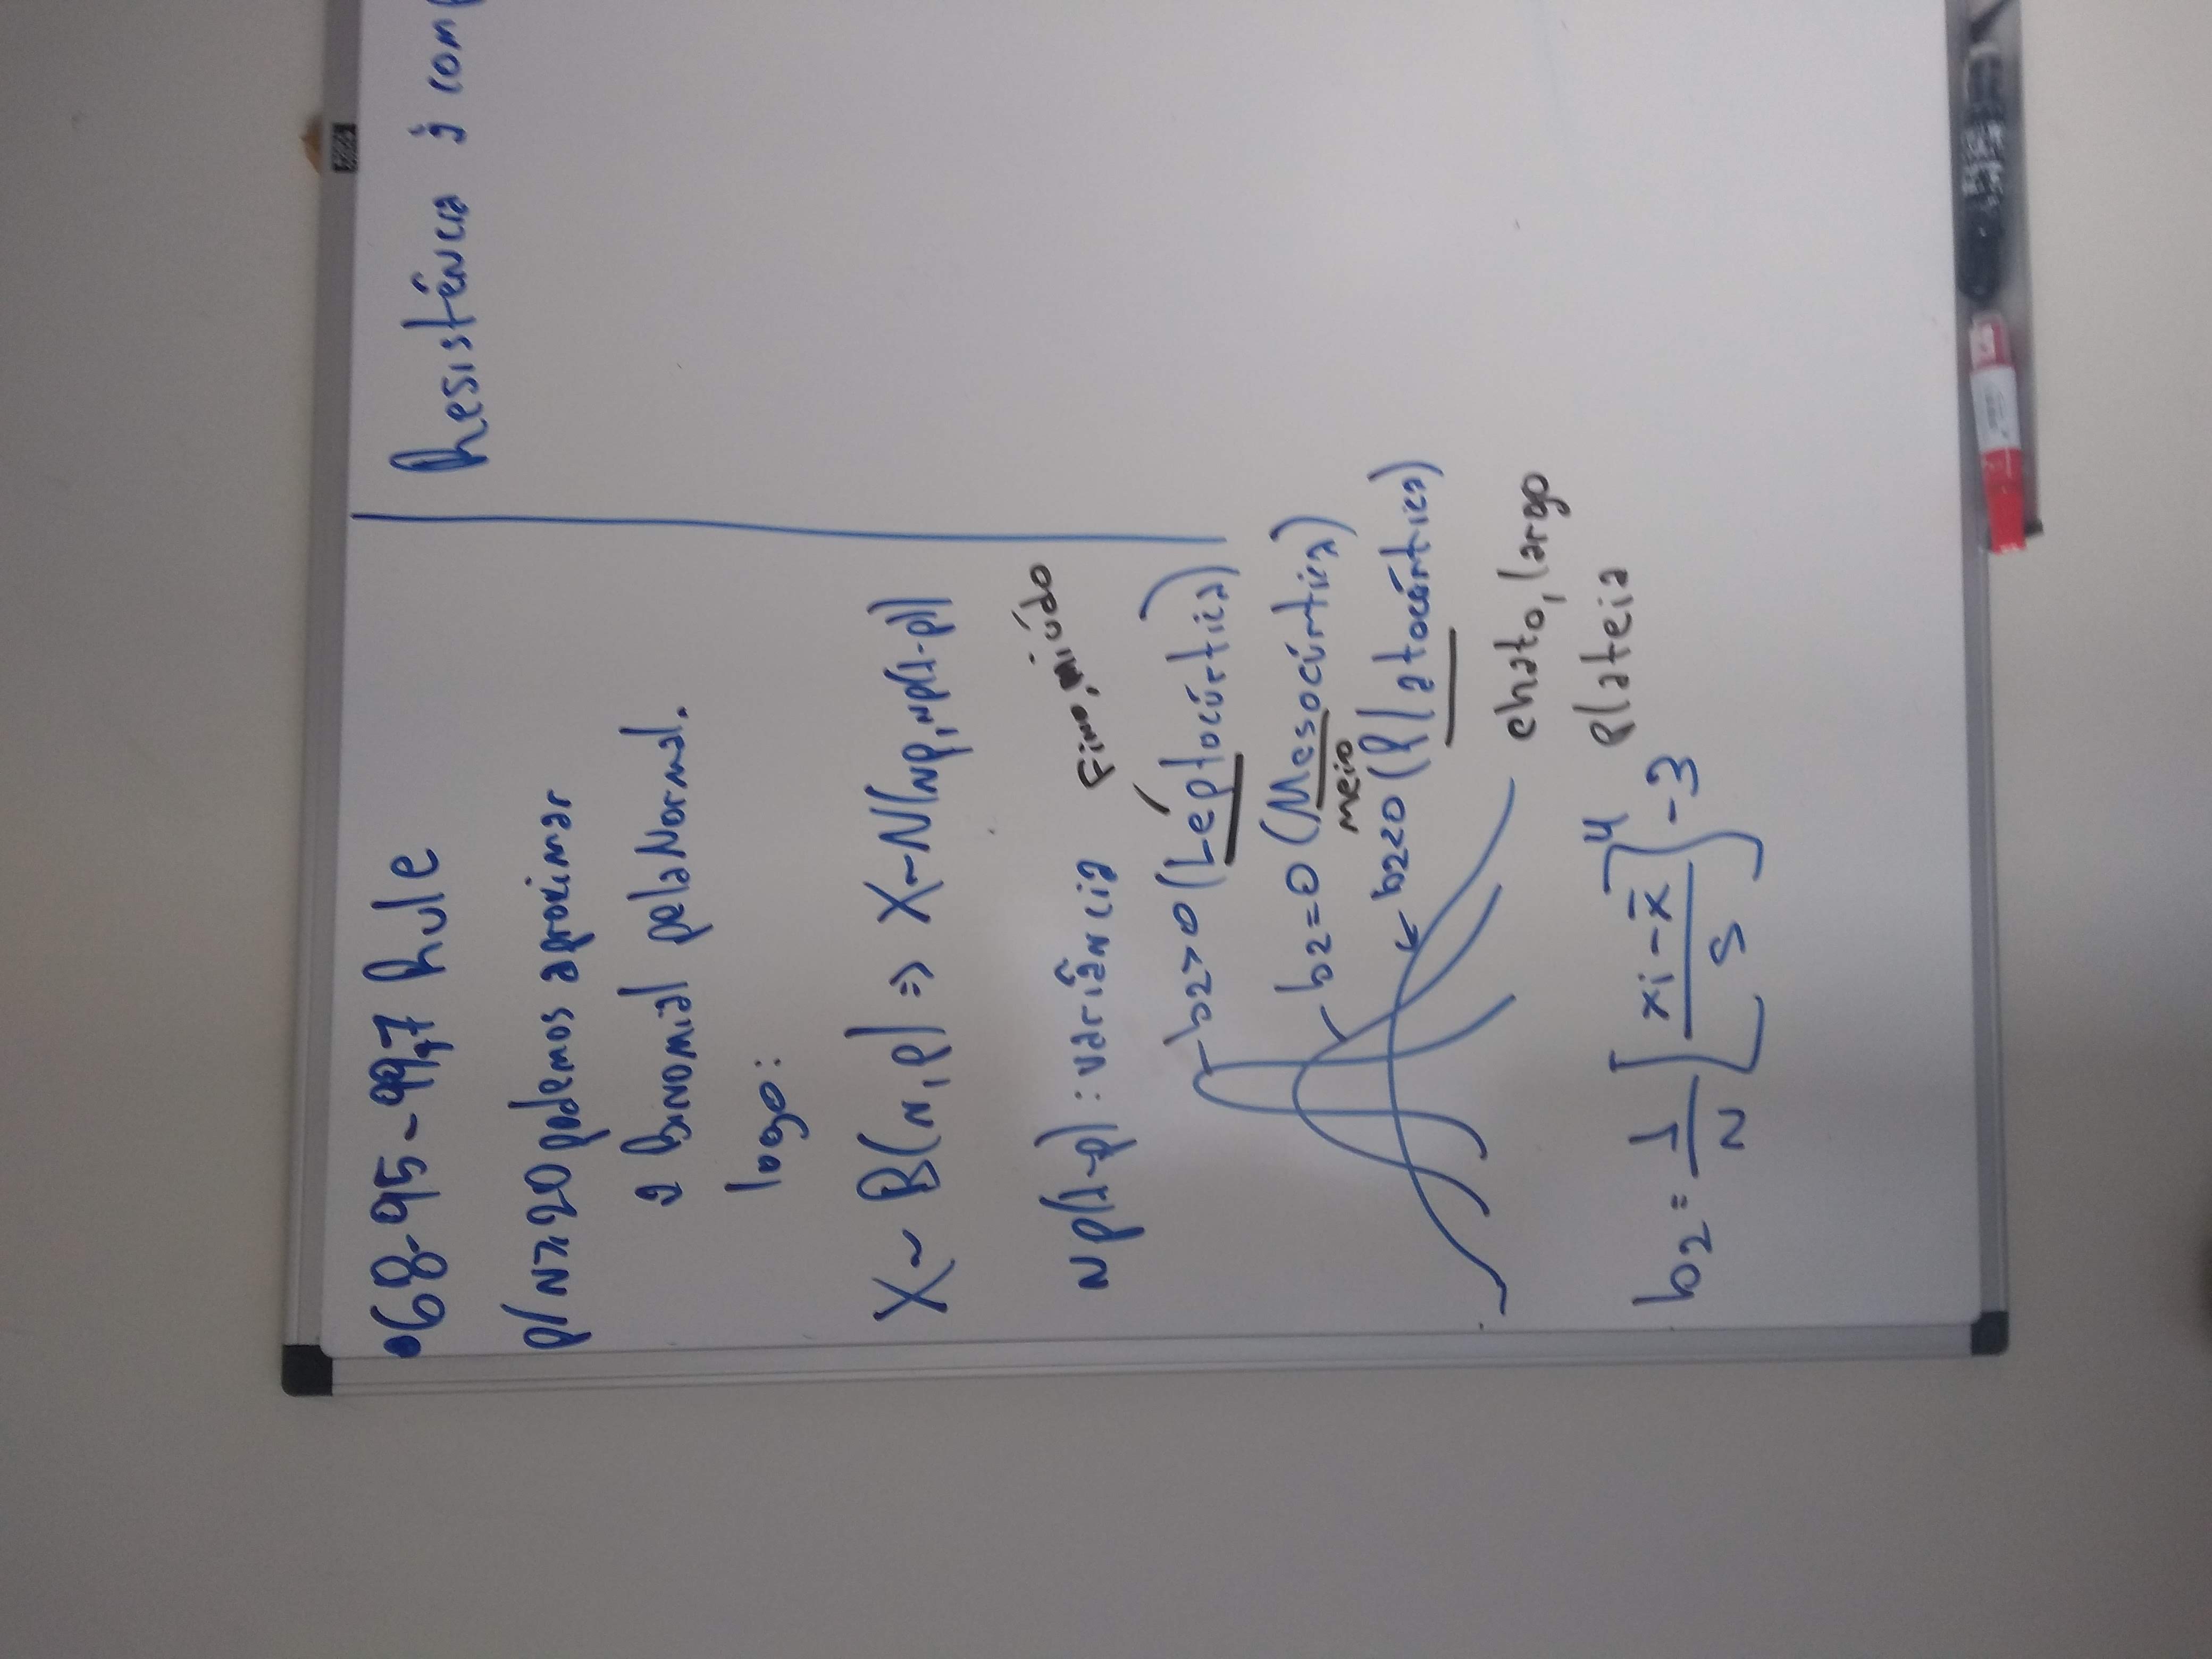 •68-95-99,7 Rule
p/ N≥20 podemos aproximar
a Binomial pela Normal.
logo:
X~B(n,p) => X~N(np,np(1-p))
Np(1-p): variância
Fino, miúdo
b2>0 (Léptocúrtica)
b2=0 (Mesocúrtica)
meio
b2<0 (Platocúrtica)
chato, largo
plateia
b2 = 1/N [xi-x̄/S]^4 -3
Resistência à comp